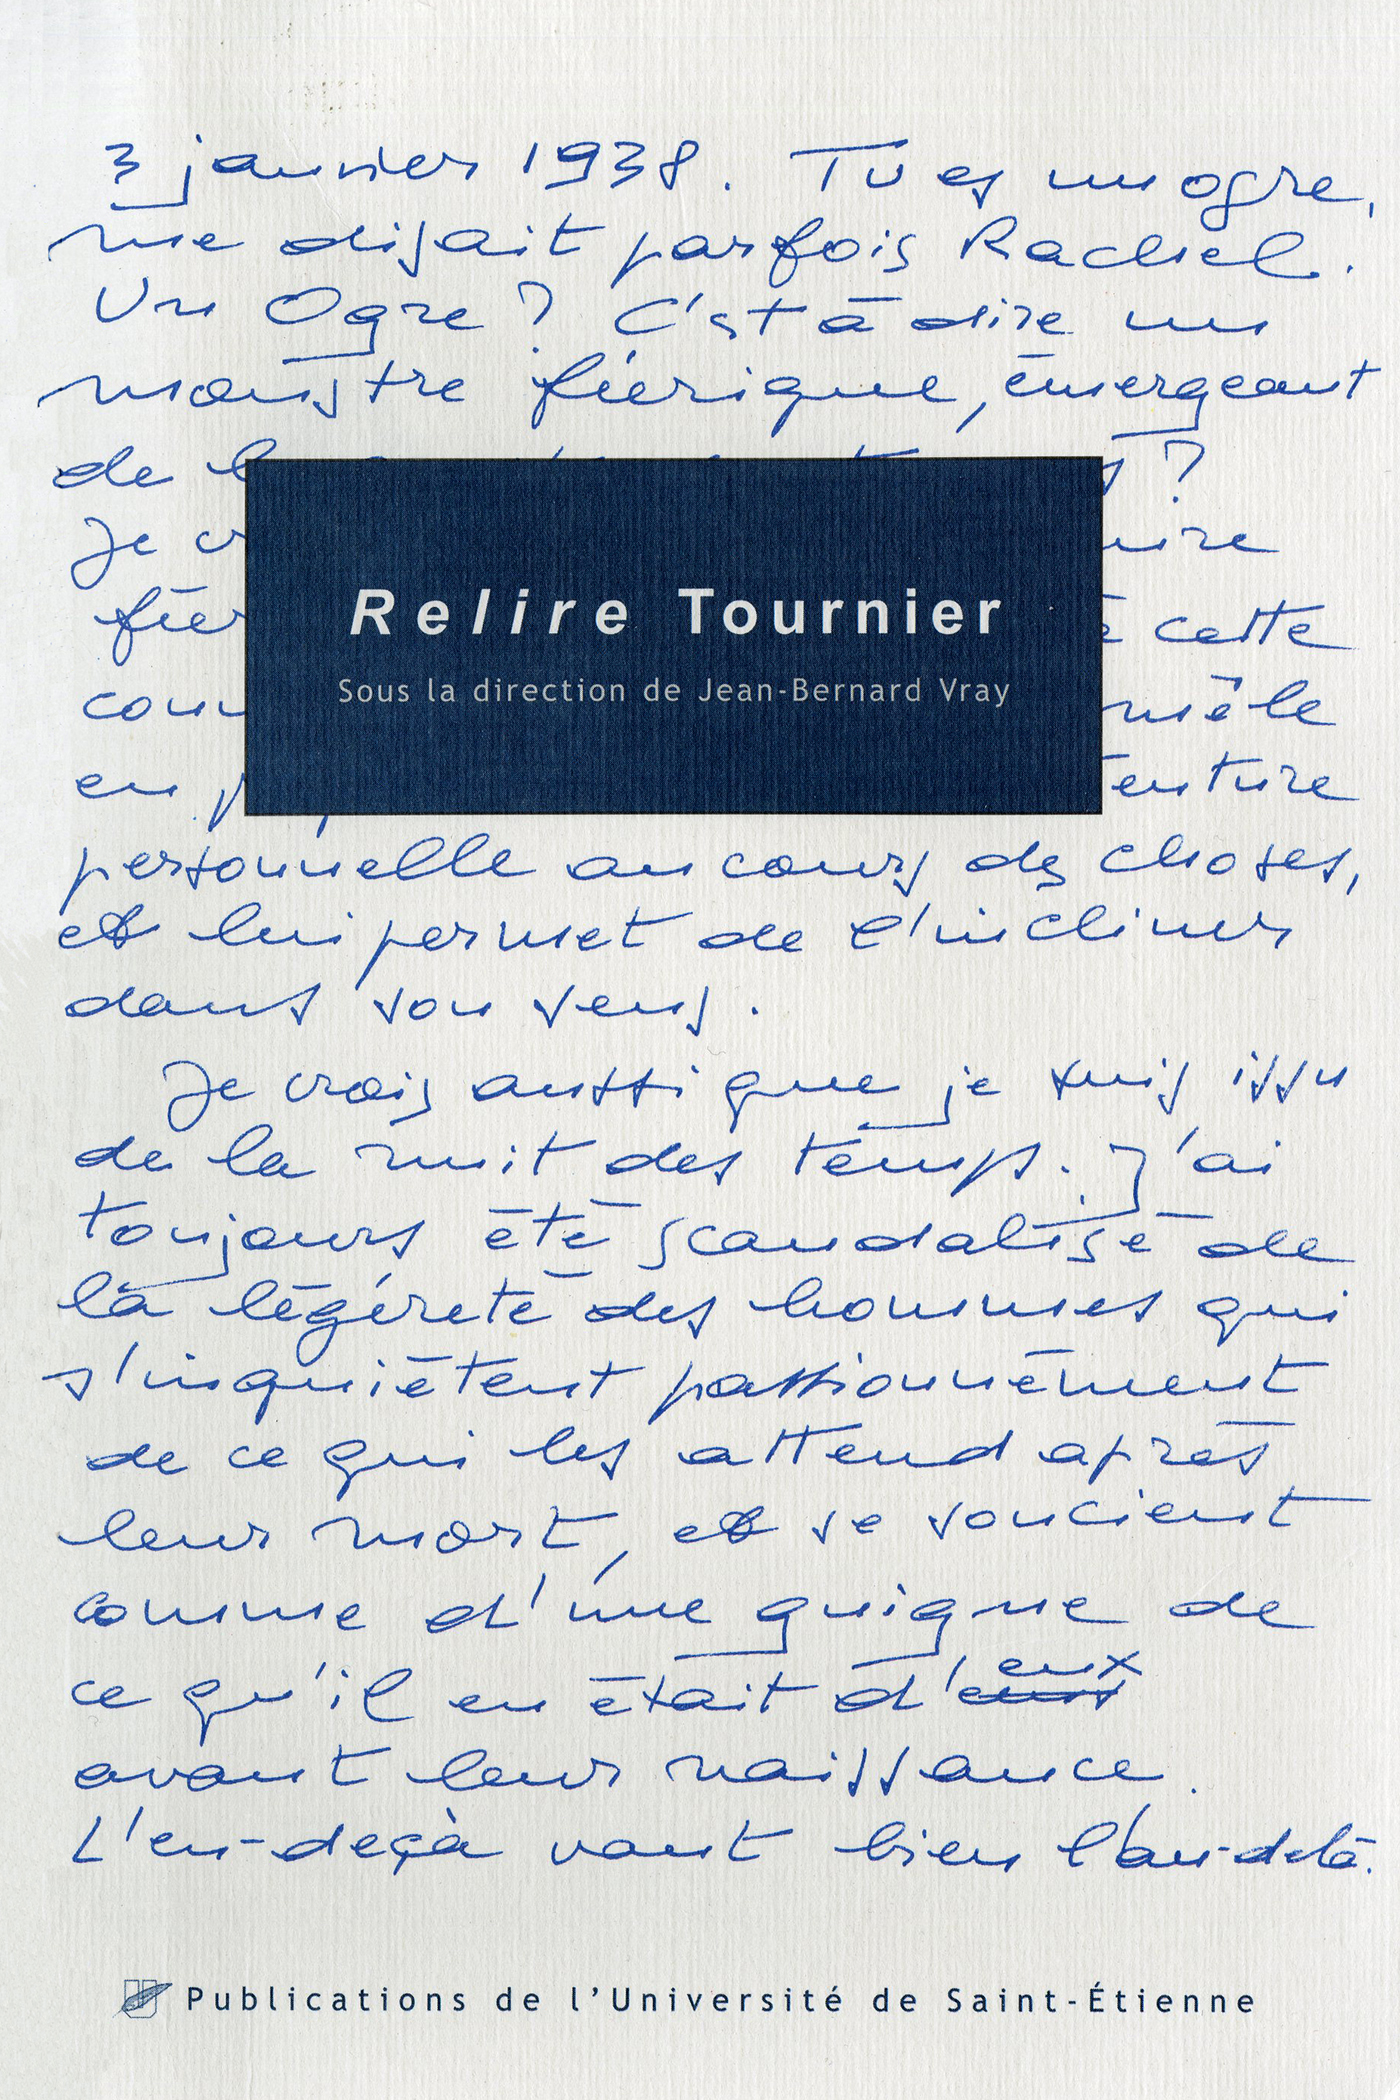 3 janvier 1938. Tu es un ogre,
me disait parfois Rachel.
Un Ogre ? C'est à dire un
monstre féerique, émergeant
de ?
Je
cette
mêle
en
personnelle au cours des choses,
et lui permet de l'incliner
dans son sens.
Relire Tournier
Sous la direction de Jean-Bernard Vray
Je crois aussi que je suis issu
de la nuit des temps. J'ai
toujours été scandalisé de
la légèreté des hommes qui
s'inquiètent passionnément
de ce qui les attend après
leur mort, et se soucient
comme d'une guigne de
ce qu'il en était d'eux
avant leur naissance.
L'en-deçà vaut bien l'au-delà.
Publications de l'Université de Saint-Étienne